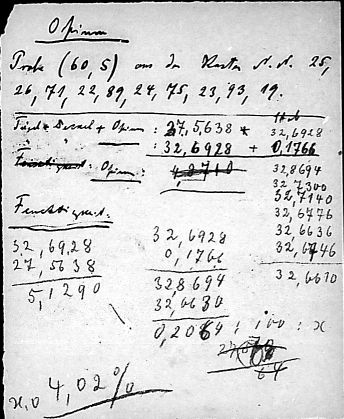 Opium
Probe (60,5) aus den Kasten N.N. 25,
26, 71, 22, 89, 24, 75, 23, 93, 19.
Tiegel + Deckel + Opium : 27,5638 *
" " : 32,6928 + 0,1766
Opium: 4,8710
32,6928
32,8694
32,7300
32,7140
32,6776
32,6636
32,6746
32,6670
Feuchtigkeit.
32,6928
27,5638
5,1290
32,6928
0,1766
32,8694
32,6630
0,2064 : 100 : x
64
4,02%